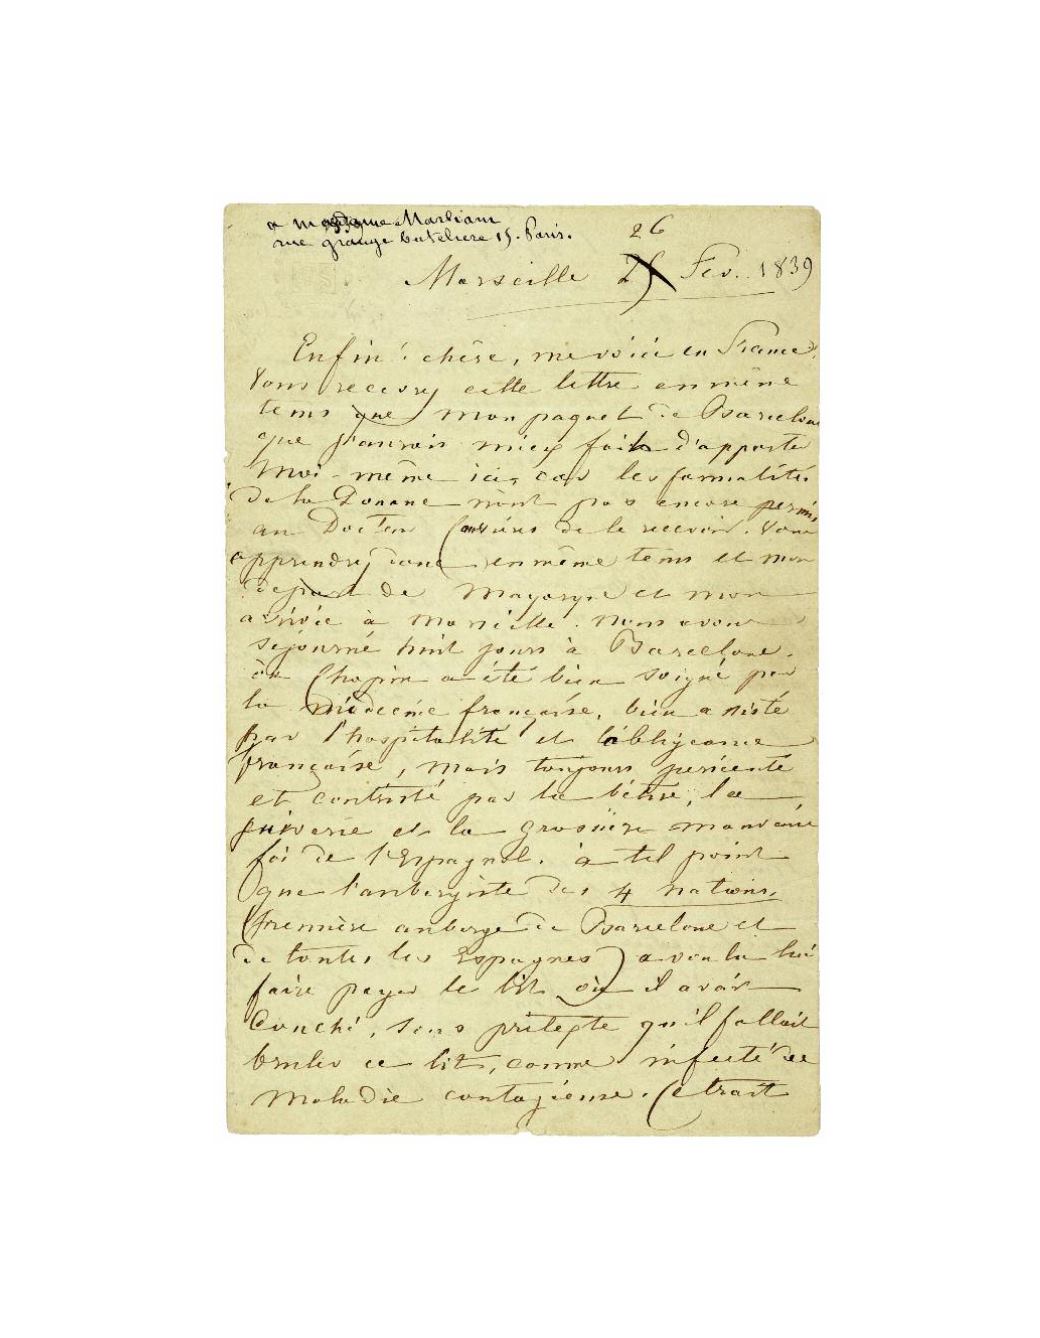 a madame Marliani
rue grange batelière 15. Paris.
26
Marseille 25 Fev. 1839
Enfin! chère, me voici en France.
Vous recevrez cette lettre en même
tems que mon paquet de Barcelone
que j'aurais mieux fait d'apporter
moi-même ici, car les formalités
de la Douane n'ont pas encore permis
au Docteur Cauvières de le recevoir. Vous
apprendrez donc en même tems et mon
départ de Mayorque et mon
arrivée à Marseille. Nous avons
séjourné huit jours à Barcelone.
où Chopin a été bien soigné par
la médecine française, bien assisté
par l'hospitalité et l'obligeance
française, mais toujours
et contristé par la bêtise, la
et la grossière mauvaise
foi de l'Espagnol. à tel point
que l'aubergiste des 4 nations,
(première auberge de Barcelone et
de toutes les Espagnes) a voulu lui
faire payer le lit où il avait
couché, sous prétexte qu'il fallait
bruler ce lit, comme infecté de
maladie contagieuse. Ce trait